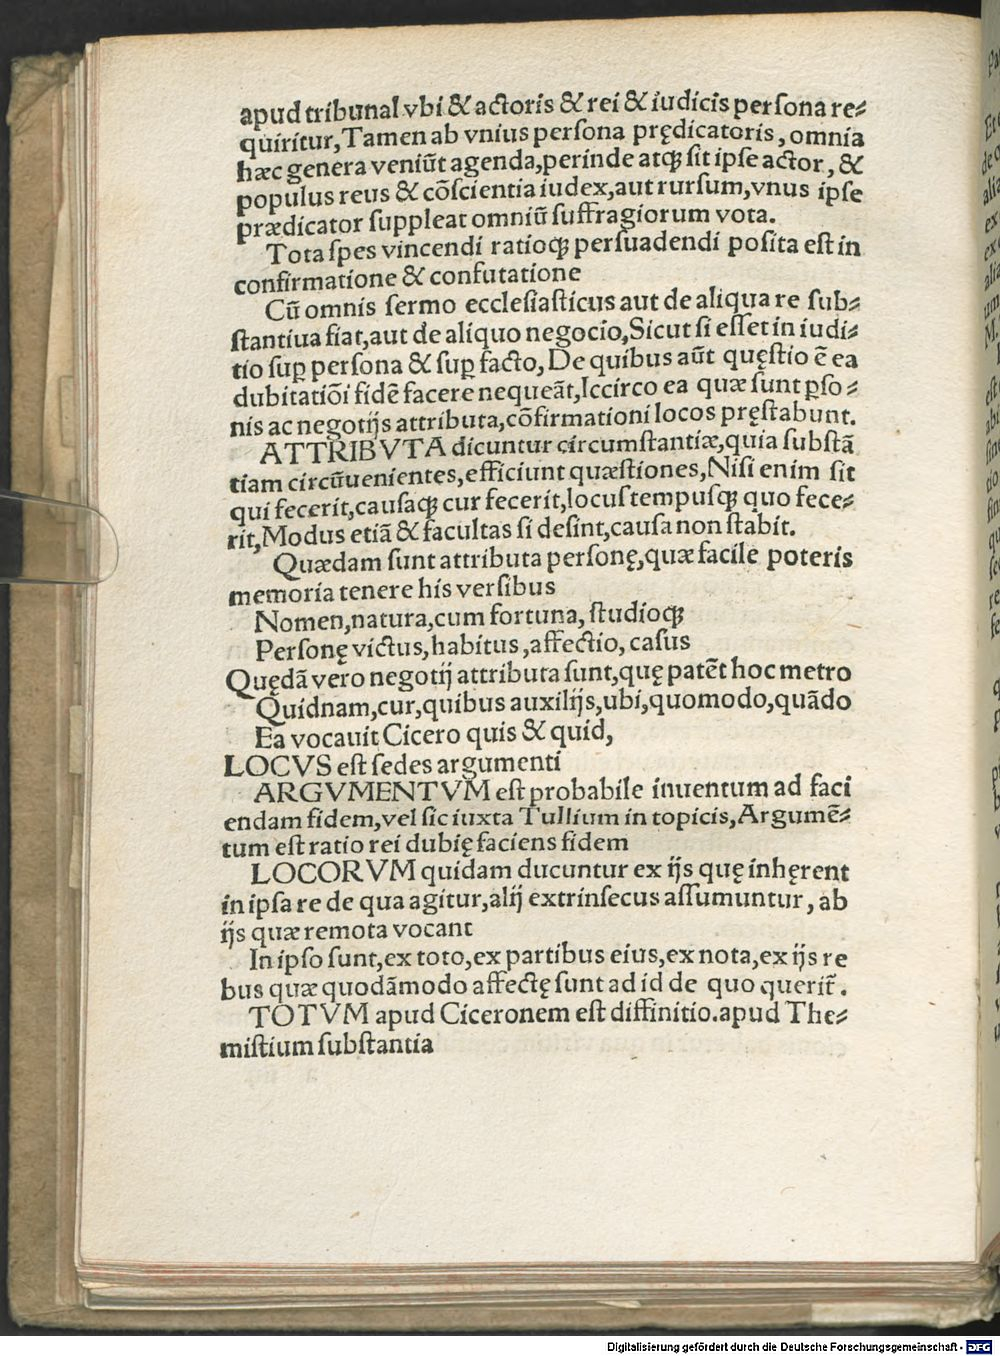 apud tribunal vbi & actoris & rei & iudicis perſona re⸗
quiritur, Tamen ab vnius perſona prędicatoris, omnia
hæc genera veniūt agenda, perinde atqꝫ ſit ipſe actor, &
populus reus & cōſcientia iudex, aut rurſum, vnus ipſe
prædicator ſuppleat omniū ſuffragiorum vota.
Tota ſpes vincendi ratioqꝫ perſuadendi poſita eſt in
confirmatione & confutatione
Cū omnis ſermo eccleſiaſticus aut de aliqua re ſub⸗
ſtantiua fiat, aut de aliquo negocio, Sicut ſi eſſet in iudi⸗
tio suꝑ perſona & ſuꝑ facto, De quibus aūt quęſtio ē ea
dubitatiōi fidē facere nequeāt, Iccirco ea quæ ſunt ꝑſo⸗
nis ac negotijs attributa, cōfirmationi locos pręſtabunt.
ATTRIBVTA dicuntur circumſtantiæ, quia ſubſtā
tiam circūuenientes, efficiunt quæſtiones, Niſi enim ſit
qui fecerit, cauſaqꝫ cur fecerit, locuſ tempuſqꝫ quo fece⸗
rit, Modus etiā & facultas ſi deſint, cauſa non ſtabit.
Quædam ſunt attributa perſonę, quæ facile poteris
memoria tenere his verſibus
Nomen, natura, cum fortuna, ſtudioqꝫ
Perſonę victus, habitus, affectio, caſus
Quędā vero negotij attributa ſunt, quę patēt hoc metro
Quidnam, cur, quibus auxilijs, ubi, quomodo, quādo
Ea vocauit Cicero quis & quid,
LOCVS eſt ſedes argumenti
ARGVMENTVM eſt probabile inuentum ad faci
endam fidem, vel ſic iuxta Tullium in topicis, Argumē⸗
tum eſt ratio rei dubię faciens fidem
LOCORVM quidam ducuntur ex ijs quę inhęrent
in ipſa re de qua agitur, alij extrinſecus aſſumuntur, ab
ijs quæ remota vocant
In ipſo ſunt, ex toto, ex partibus eius, ex nota, ex ijs re
bus quæ quodāmodo affectę ſunt ad id de quo querit᷑.
TOTVM apud Ciceronem eſt diffinitio. apud The⸗
miſtium ſubſtantia
Digitalisierung gefördert durch die Deutsche Forschungsgemeinschaft - DFG